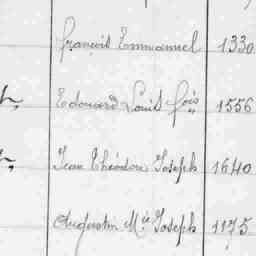 françois Emmanuel 1330
h, Edouard Louis fçois 1556
h, Jean Théodore Joseph 1640
Augustin Mie Joseph 1175